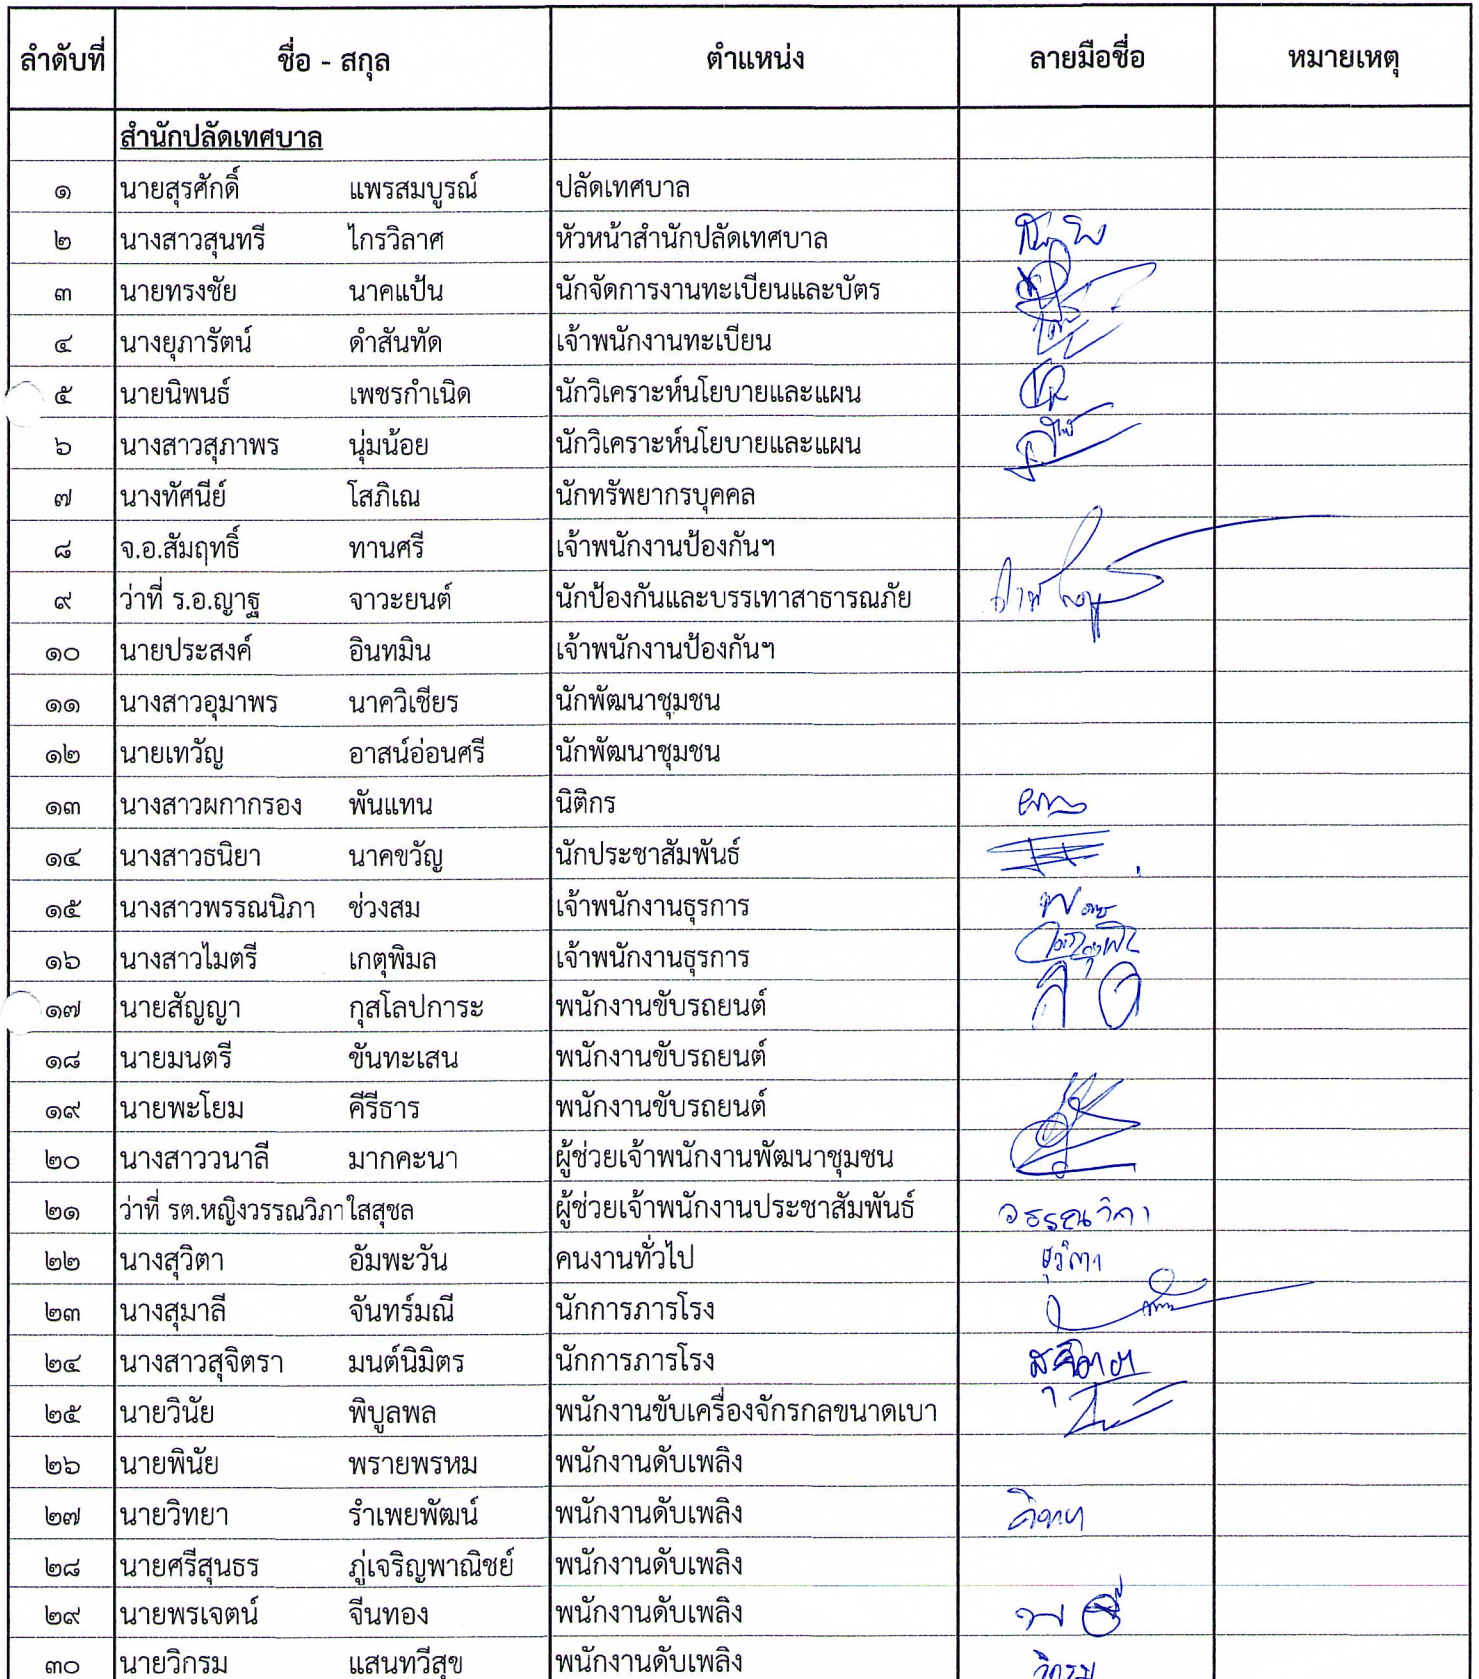 ลำดับที่ ชื่อ - สกุล ตำแหน่ง ลายมือชื่อ หมายเหตุ
สำนักปลัดเทศบาล
๑ นายสุรศักดิ์ แพรสมบูรณ์ ปลัดเทศบาล
๒ นางสาวสุนทรี ไกรวิลาศ หัวหน้าสำนักปลัดเทศบาล
๓ นายทรงชัย นาคแป้น นักจัดการงานทะเบียนและบัตร
๔ นางยุภารัตน์ ดำสันทัด เจ้าพนักงานทะเบียน
๕ นายนิพนธ์ เพชรกำเนิด นักวิเคราะห์นโยบายและแผน
๖ นางสาวสุภาพร นุ่มน้อย นักวิเคราะห์นโยบายและแผน
๗ นางทัศนีย์ โสภิเณ นักทรัพยากรบุคคล
๘ จ.อ.สัมฤทธิ์ ทานศรี เจ้าพนักงานป้องกันฯ
๙ ว่าที่ ร.อ.ญาฐ จาวะยนต์ นักป้องกันและบรรเทาสาธารณภัย
๑๐ นายประสงค์ อินทมิน เจ้าพนักงานป้องกันฯ
๑๑ นางสาวอุมาพร นาควิเชียร นักพัฒนาชุมชน
๑๒ นายเทวัญ อาสน์อ่อนศรี นักพัฒนาชุมชน
๑๓ นางสาวผกากรอง พันแทน นิติกร
๑๔ นางสาวธนิยา นาคขวัญ นักประชาสัมพันธ์
๑๕ นางสาวพรรณนิภา ช่วงสม เจ้าพนักงานธุรการ
๑๖ นางสาวไมตรี เกตุพิมล เจ้าพนักงานธุรการ
๑๗ นายสัญญา กุสโลปการะ พนักงานขับรถยนต์
๑๘ นายมนตรี ขันทะเสน พนักงานขับรถยนต์
๑๙ นายพะโยม คีรีธาร พนักงานขับรถยนต์
๒๐ นางสาววนาลี มากคะนา ผู้ช่วยเจ้าพนักงานพัฒนาชุมชน
๒๑ ว่าที่ รต.หญิงวรรณวิภา ใสสุชล ผู้ช่วยเจ้าพนักงานประชาสัมพันธ์ วรรณวิภา
๒๒ นางสุวิตา อัมพะวัน คนงานทั่วไป สุวิตา
๒๓ นางสุมาลี จันทร์มณี นักการภารโรง
๒๔ นางสาวสุจิตรา มนต์นิมิตร นักการภารโรง สุจิตรา
๒๕ นายวินัย พิบูลพล พนักงานขับเครื่องจักรกลขนาดเบา
๒๖ นายพินัย พรายพรหม พนักงานดับเพลิง
๒๗ นายวิทยา รำเพยพัฒน์ พนักงานดับเพลิง
๒๘ นายศรีสุนธร ภู่เจริญพาณิชย์ พนักงานดับเพลิง
๒๙ นายพรเจตน์ จีนทอง พนักงานดับเพลิง
๓๐ นายวิกรม แสนทวีสุข พนักงานดับเพลิง วิกรม